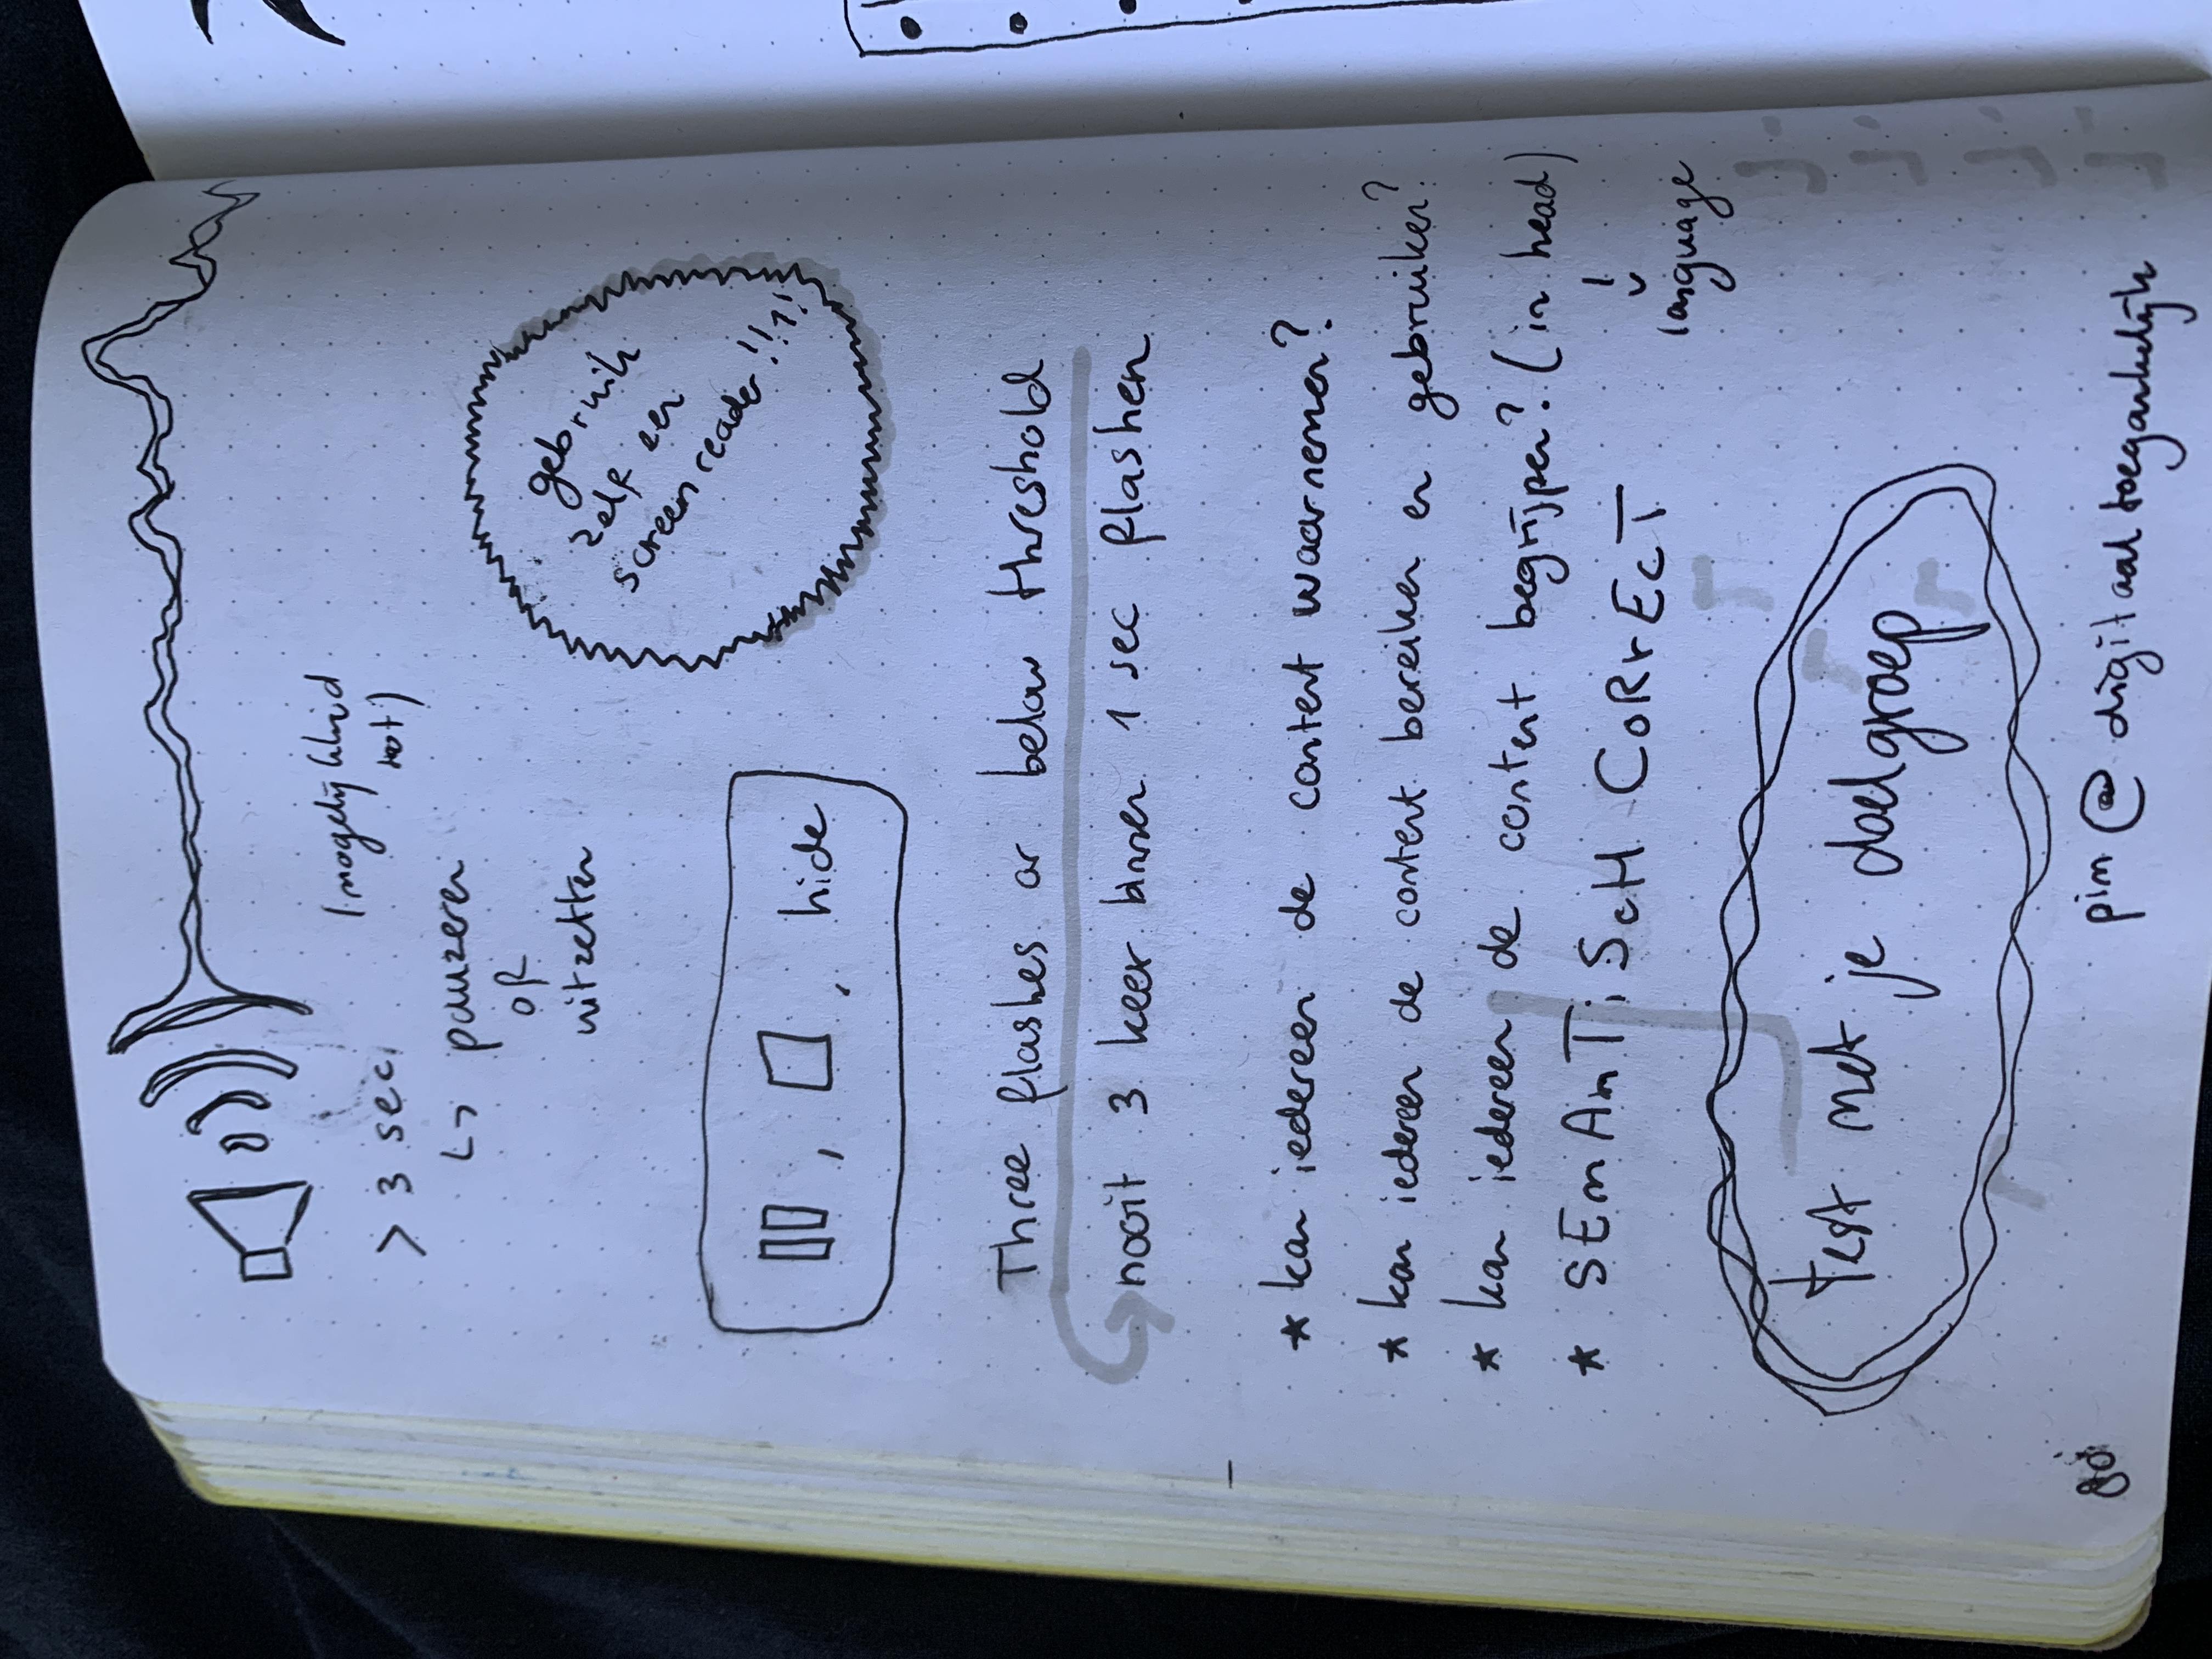 (mogelijkheid
tot)
> 3 sec.
↳ pauzeren
of
uitzetten
gebruik
zelf een
screen reader !!1!
, , hide
Three flashes or below threshold
nooit 3 keer binnen 1 sec flashen
* kan iedereen de content waarnemen?
* kan iedereen de content bereiken en gebruiken?
* kan iedereen de content begrijpen? (in head)
* SEmAnTiScH CoRrEcT
language
test met je doelgroep
80
pim @ digitaal toegankelijk